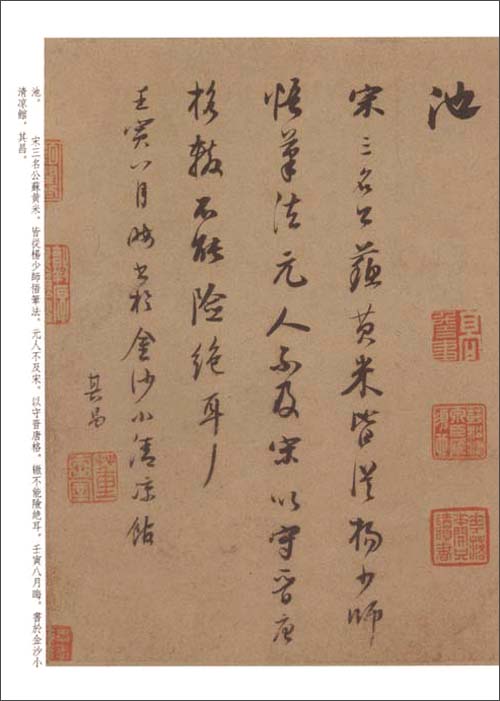 池
宋三名公蘇黄米皆從楊少師
悟筆法元人不及宋以守晋唐
格轍不能險絶耳
壬寅八月晦書於金沙小清凉館
其昌
池。 宋三名公蘇黄米，皆從楊少師悟筆法。元人不及宋，以守晋唐格，轍不能險絶耳。壬寅八月晦，書於金沙小
清凉館，其昌。